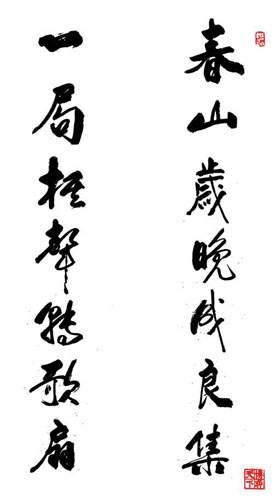 春山歲晚成良集
一局聲歌扇